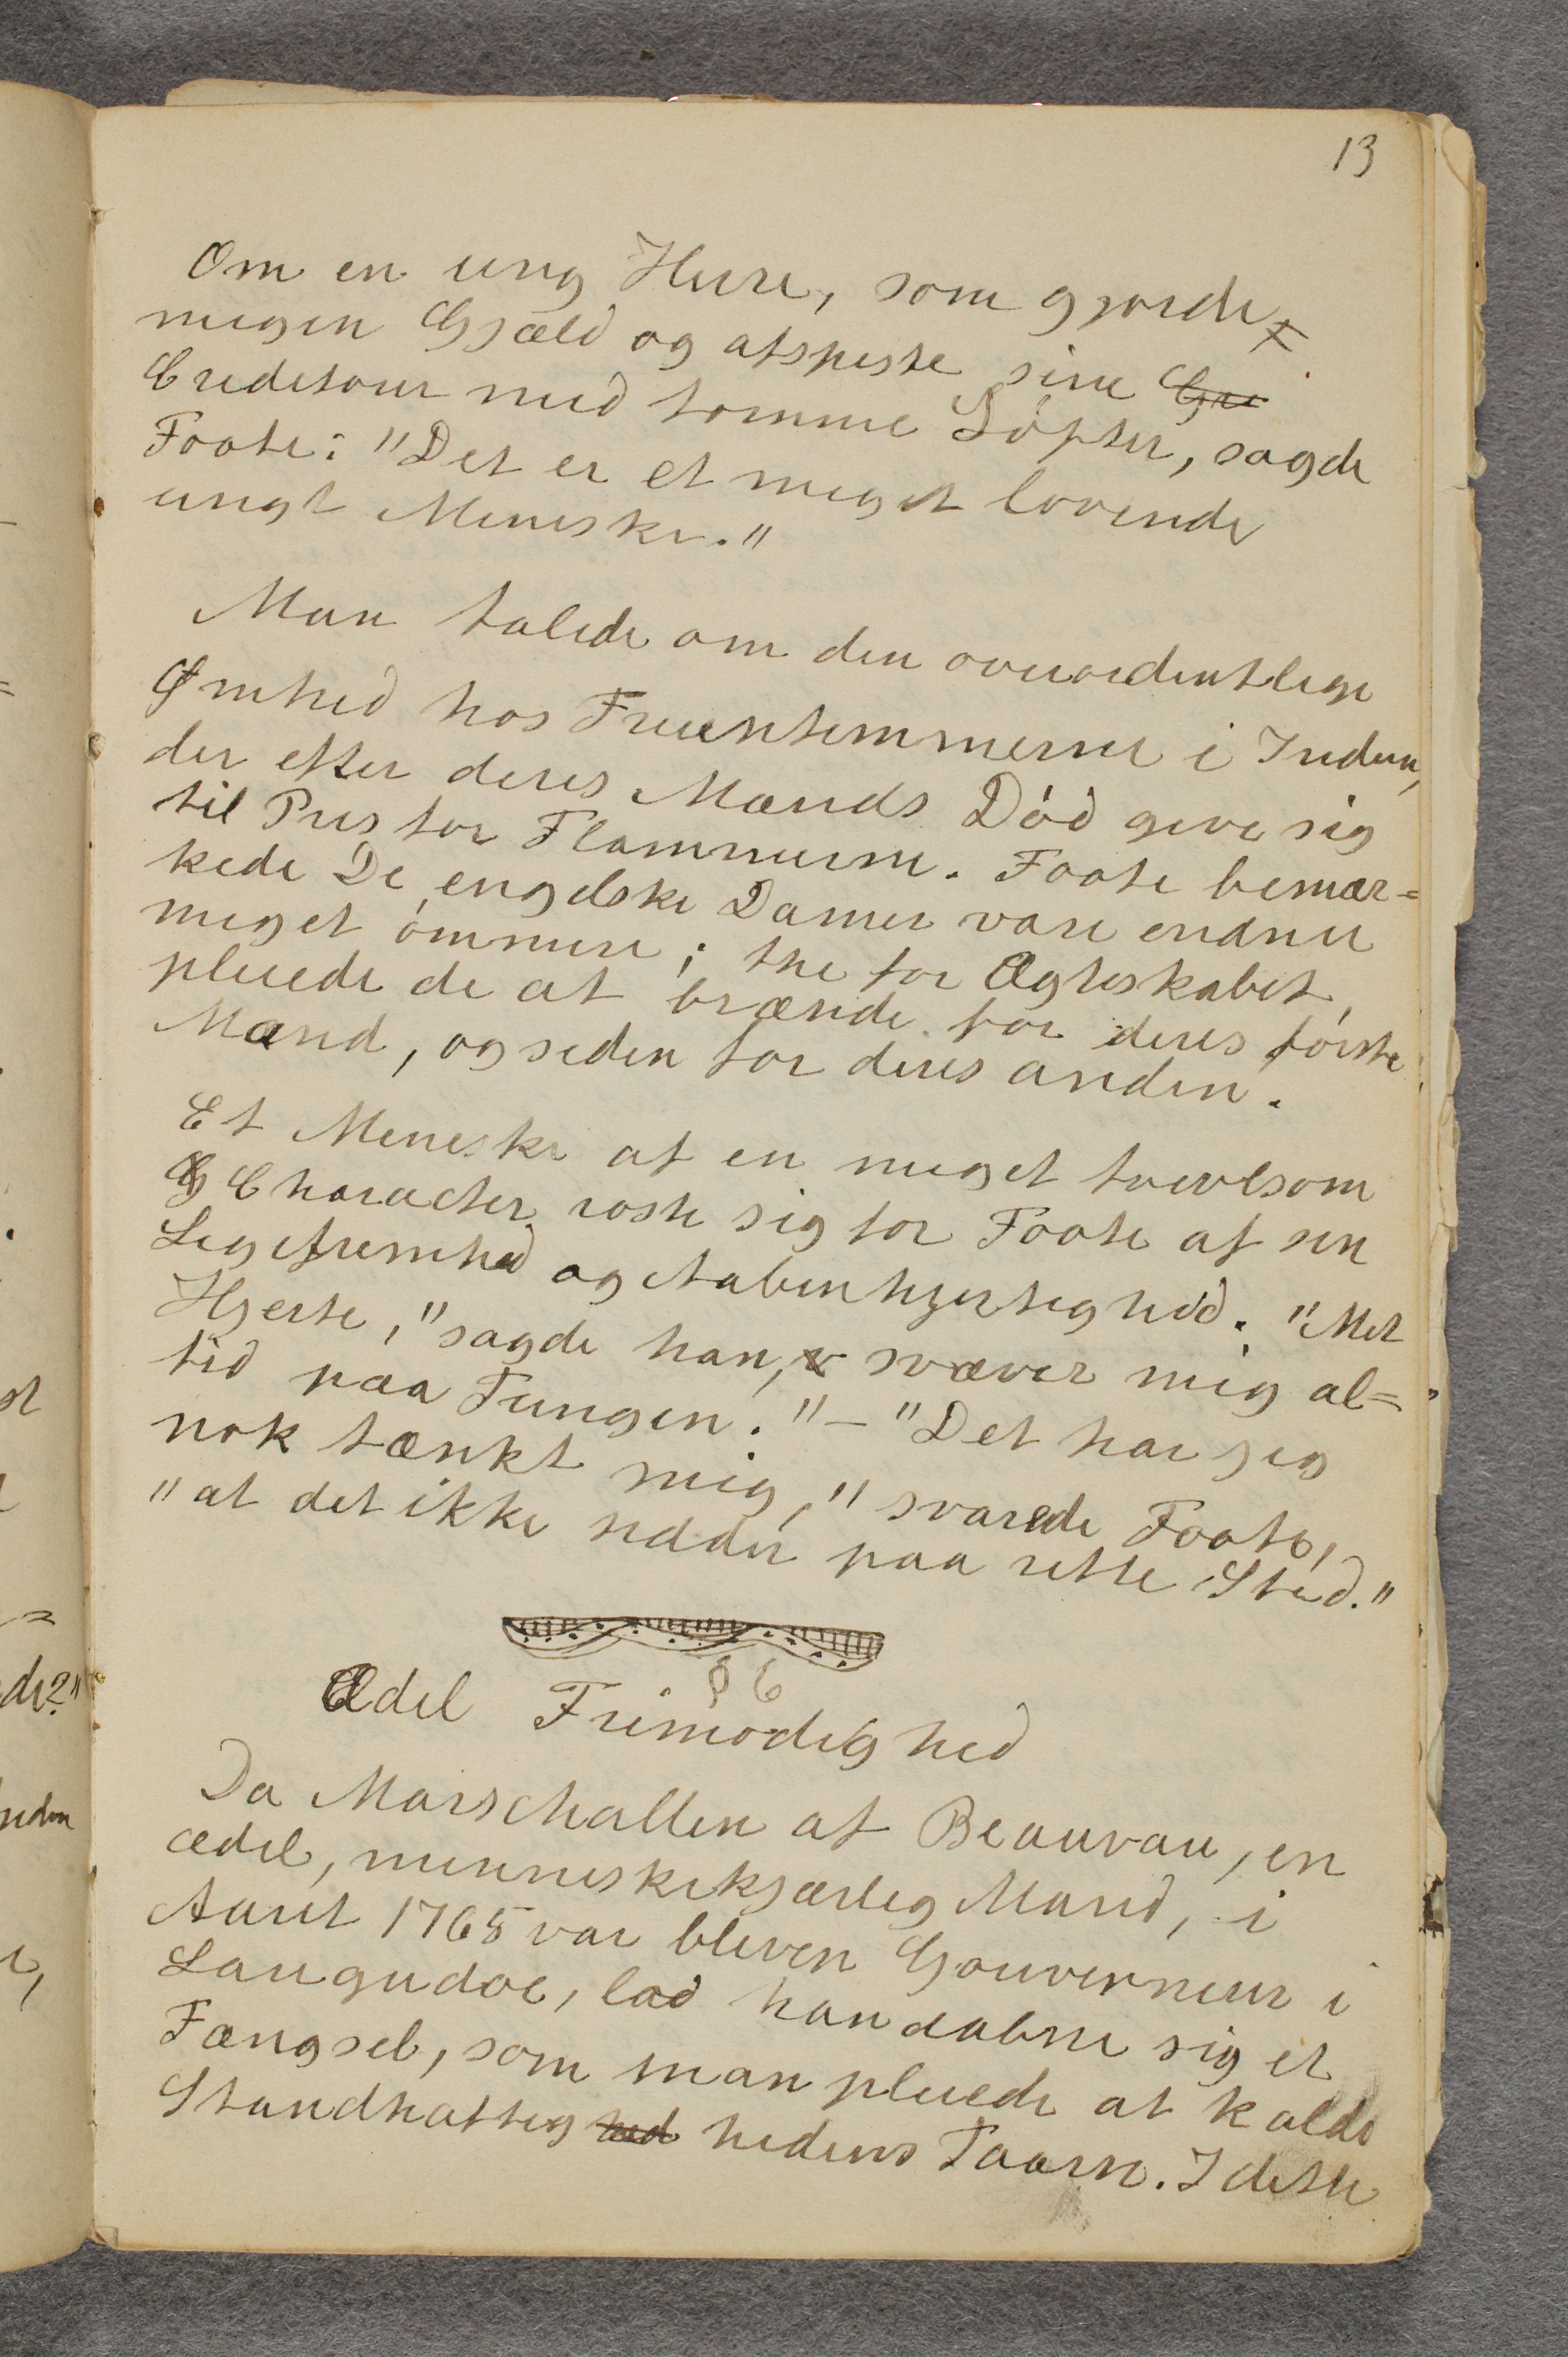 13
Om en ung Herre, som gjorde
megen Gjæld og afspeste sine Gre
Creditorer med tomme Löfter, sagde
Foote: "Det er et meget lovende
ungt Menneske."
Man talede om den overordentlige
Ømhed hos Fruentimmerne i Indien,
der efter deres Mænds Död give sig
til Pris for Flammerne. Foote bemær=
kede De engelske Damer vare endnu
meget ömmere; thi for Ægteskabet
pleiede de at brænde for deres förste
Mand, og siden for deres anden.
Et Meneske af en meget tvivlsom
G Character roste sig for Foote af sin
Ligefremhed og Aabenhjertighed. "Mit
Hjerte," sagde han, v svæver mig al=
tid paa Tungen." - "Det har jeg
nok tænkt mig," svarede Foote,
"at det ikke sidder paa rette Sted."
§ 6
Ædel Frimodighed
Da Marschallen af Beauvau, en
ædel, menneskekjærlig Mand, i
Aaret 1765 var bleven Gouverneur i
Languedoc, lod han aabne sig et
Fængsel, som man pleiede at kalde
Standhaftig hed hedens Taarn. I dette